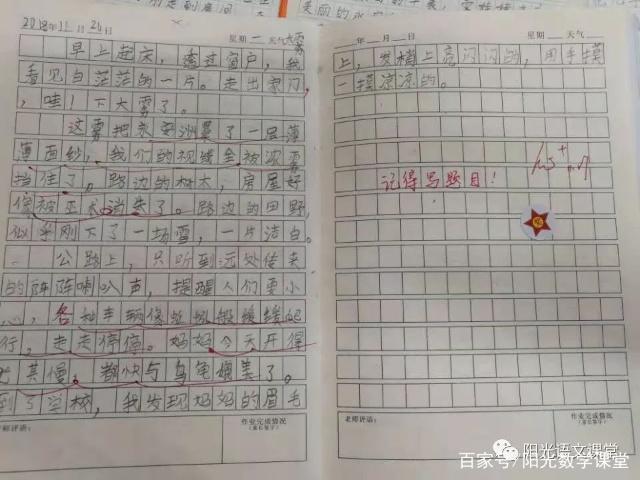 2018年11月26日 星期一 天气大雾
早上起床，透过窗户，我
看见白茫茫的一片。走出家门，
，哇！下大雾了。
这雾把家蒙了一层薄
薄面纱，我们的视线全被浓雾
挡住了。路边的树木，房屋好
像被巫术消失了。路边的田野，
似乎刚下了一场雪，一片洁白。
公路上，只听到远处传来
的阵阵喇叭声，提醒人们要小
心，各种车辆像蚯蚓缓缓爬
行，走走停停。妈妈今天开得
尤其慢，都快与乌龟媲美了。
到了学校，我发现妈妈的眉毛
老师评语：
作业完成情况
（家长签字）
年 月 日 星期 天气
上，发梢上亮闪闪的，用手摸
一摸凉凉的。
记得写题目！
老师评语：
作业完成情况
（家长签字）
阳光语文课堂
百家号/阳光数学课堂